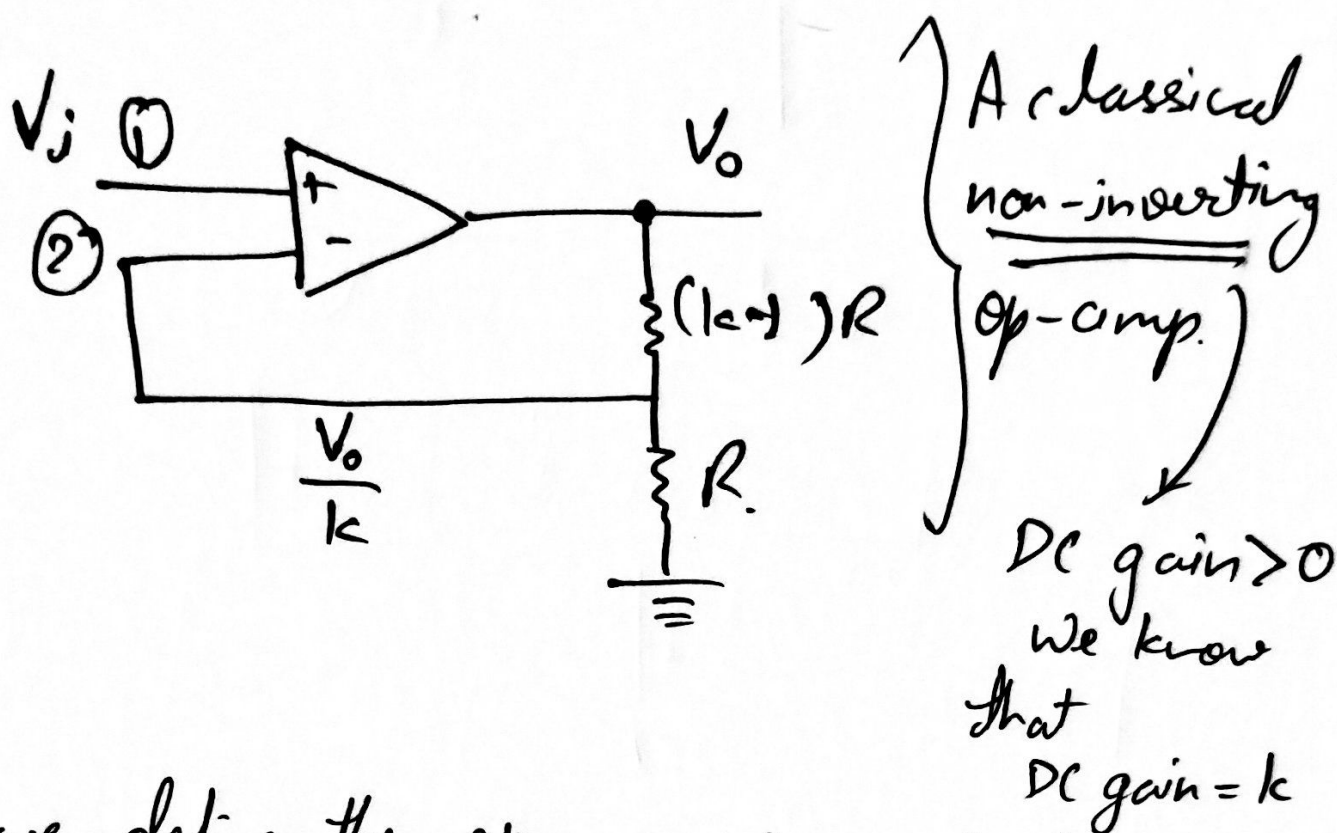 Vi ①
②
+
-
Vo
(k-1)R
R.
Vo
k
A classical
non-inverting
op-amp.
DC gain>0
we know
that
DC gain = k